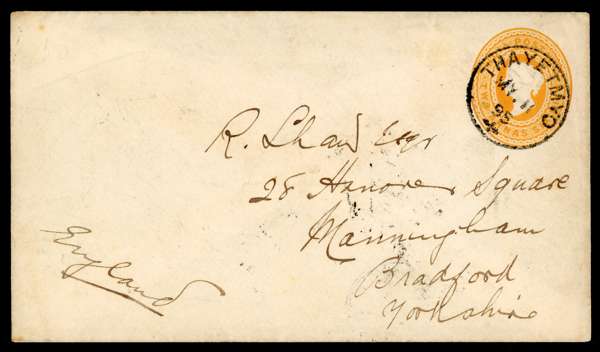 THAYETMYO
MY 11
95
R. Shaw Esqr
28 Hanover Square
Manningham
Bradford
Yorkshire
England